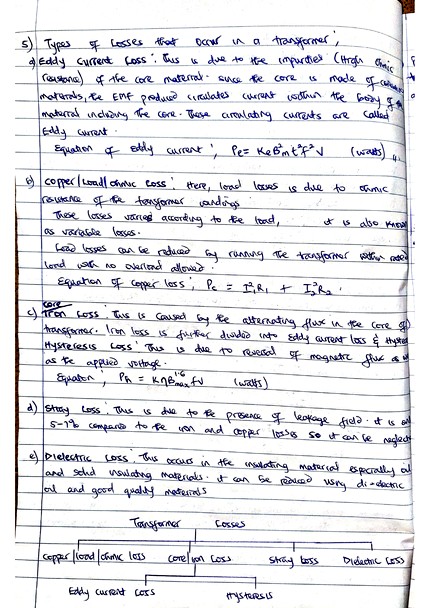 5) Types of Losses that occur in a transformer;
a) Eddy Current Loss: This is due to the impurities (High Ohmic
resistance) of the core material. Since the core is made of
materials, the EMF produced circulates current within the body of the
material including the core. These circulating currents are called
Eddy current.
Equation of eddy current; Pe = KeB²m t²f²V (watts)
b) copper/Load/ohmic Loss: Here, load losses is due to ohmic
resistance of the transformer windings
These losses varies according to the load, it is also known
as variable losses.
Load losses can be reduced by running the transformer within rated
load with no overload allowed.
Equation of copper loss; Pc = I₁²R₁ + I₂²R₂.
core
c) Iron Loss: This is caused by the alternating flux in the core of
transformer. Iron loss is further divided into eddy current loss &
Hysteresis Loss: This is due to reversal of magnetic flux as
as the applied voltage.
Equation, Ph = KηB1.6max fv (watts)
d) Stray Loss: This is due to the presence of leakage field. it is
5-1% compared to the iron and copper losses so it can be neglect
e) Dielectric Loss: This occurs in the insulating material especially oil
and solid insulating materials. it can be reduced using di-electric
oil and good quality materials
Transformer Losses
copper/load/ohmic loss core/iron Loss Stray Loss Dielectric Loss
Eddy current Loss Hysteresis